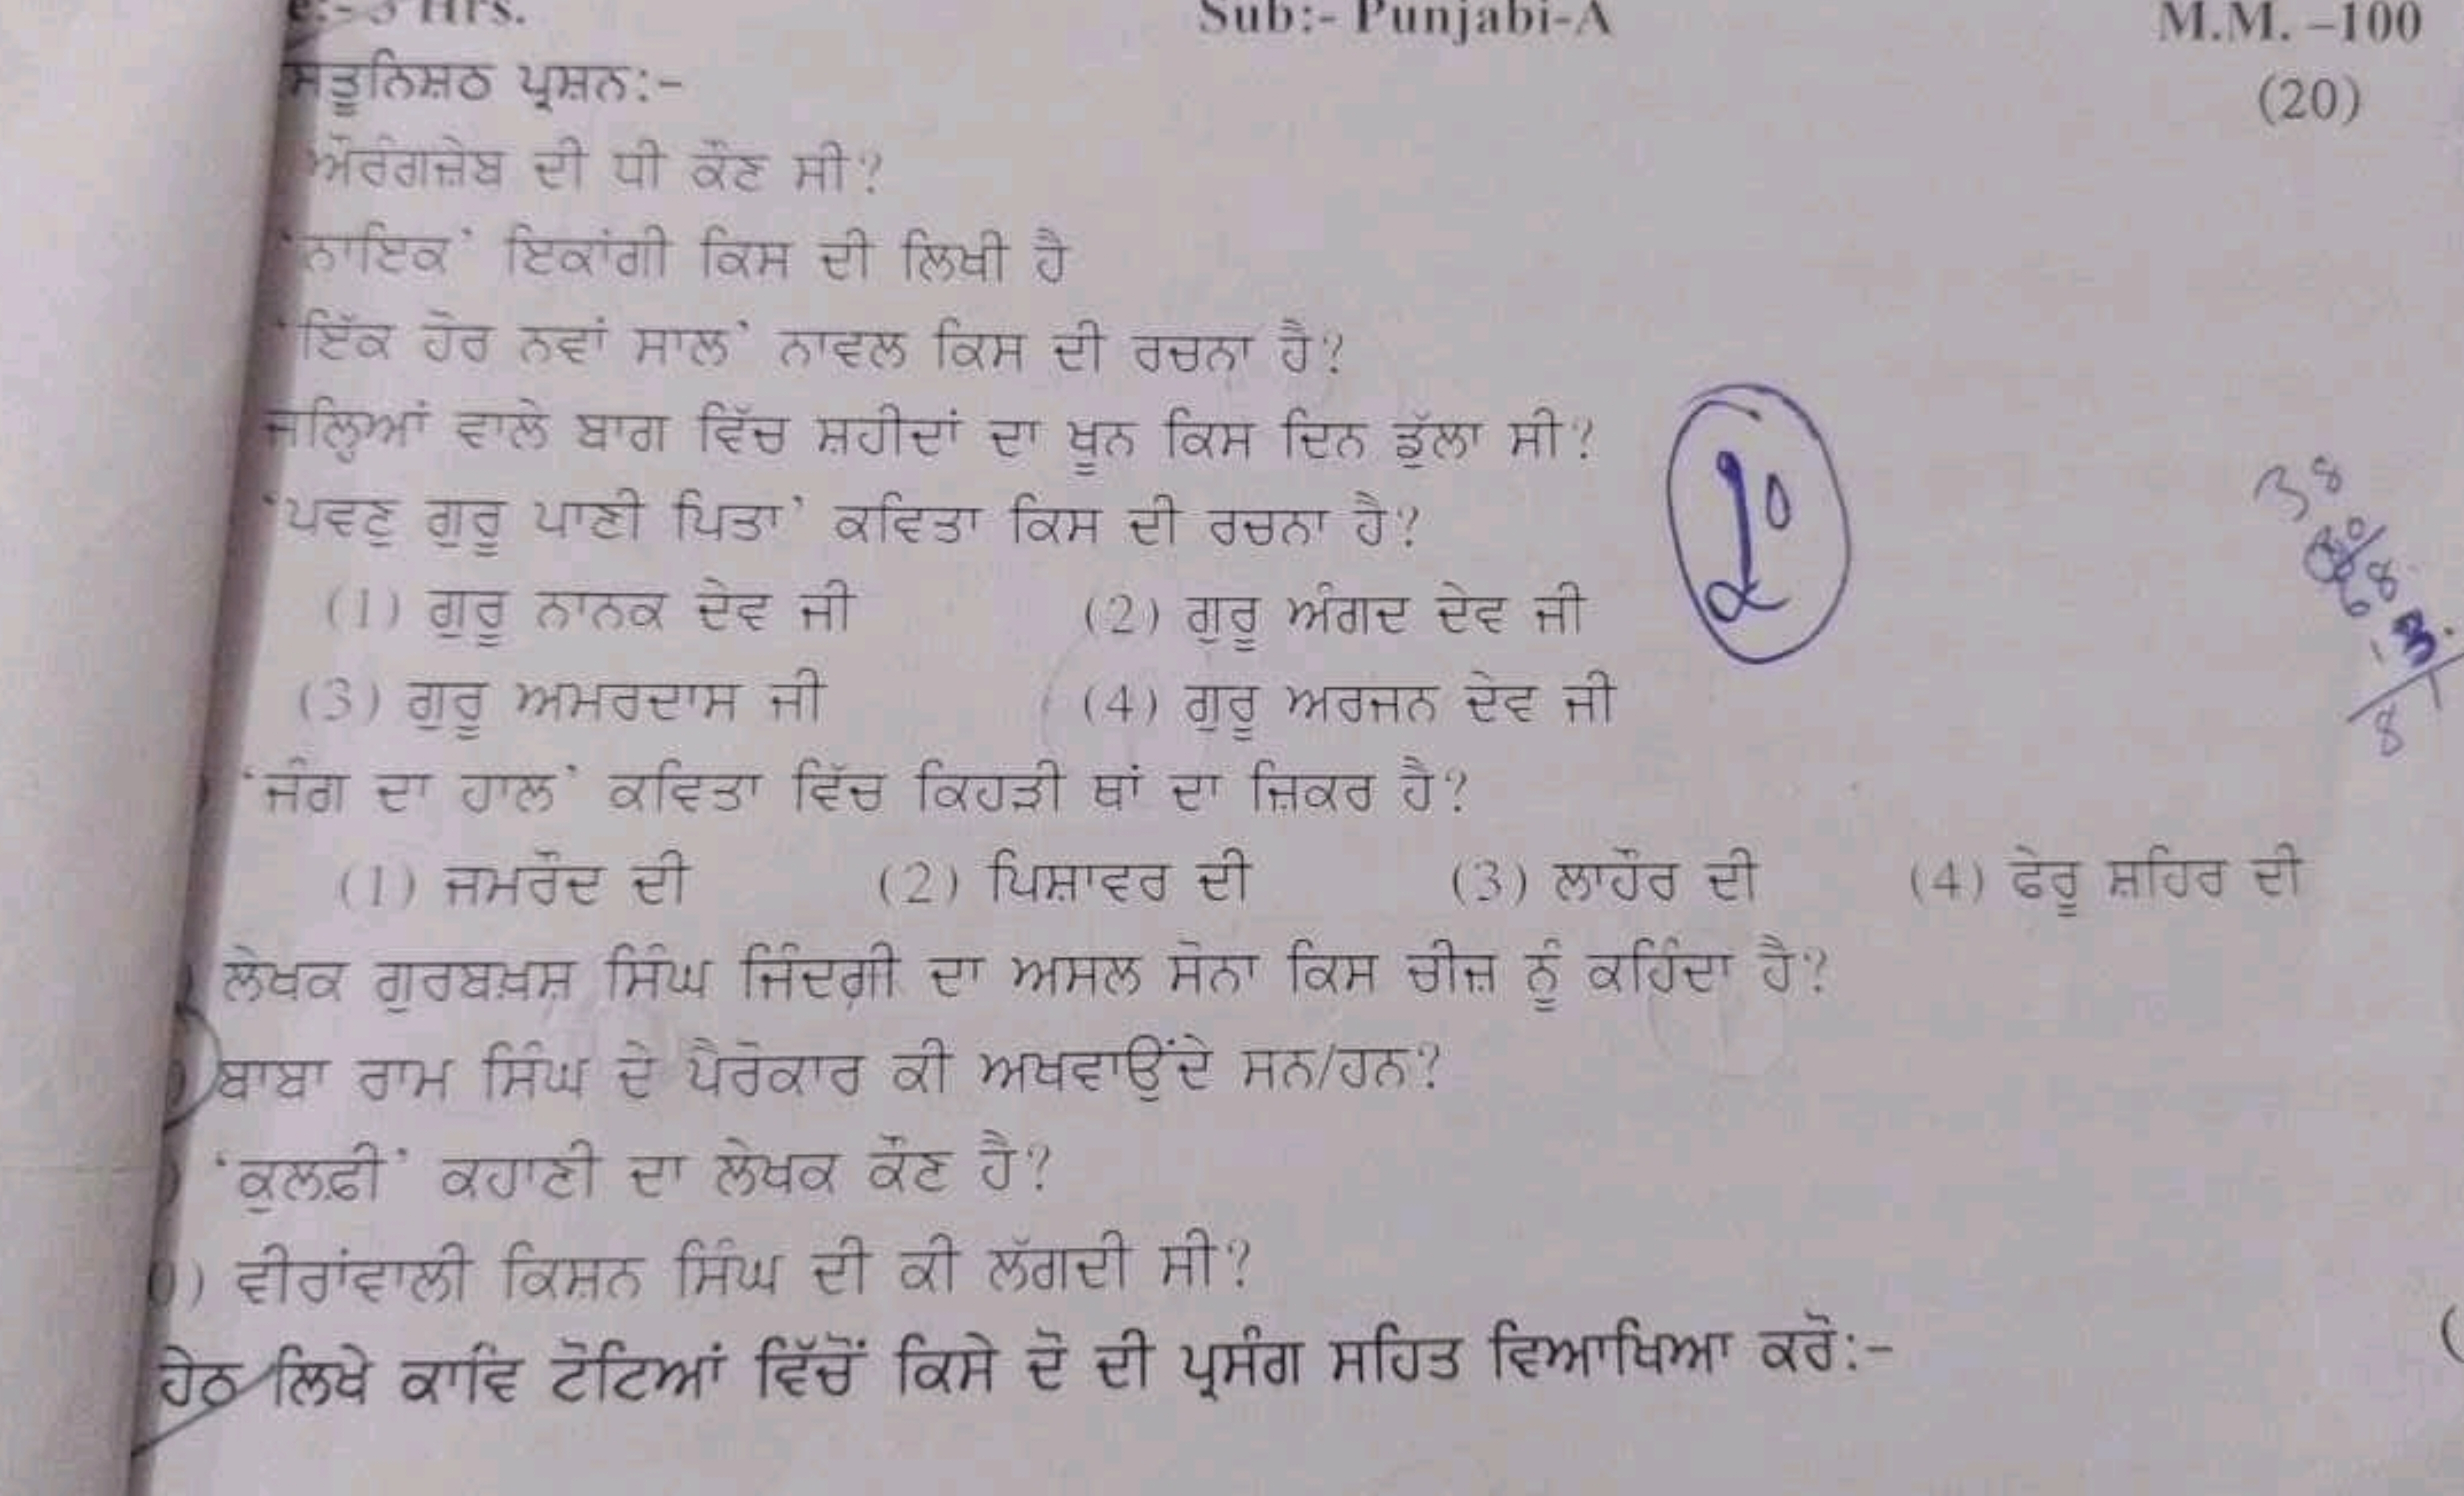 Hrs. Sub:- Punjabi-A M.M. –100
ਪ੍ਰਸ਼ਨ:- (20)
ਔਰੰਗਜ਼ੇਬ ਦੀ ਧੀ ਕੌਣ ਸੀ?
'ਨਾਇਕ' ਇਕਾਂਗੀ ਕਿਸ ਦੀ ਲਿਖੀ ਹੈ
'ਇੱਕ ਹੋਰ ਨਵਾਂ ਸਾਲ' ਨਾਵਲ ਕਿਸ ਦੀ ਰਚਨਾ ਹੈ?
ਜਲ੍ਹਿਆਂ ਵਾਲੇ ਬਾਗ ਵਿੱਚ ਸ਼ਹੀਦਾਂ ਦਾ ਖ਼ੂਨ ਕਿਸ ਦਿਨ ਡੁੱਲਾ ਸੀ?
'ਪਵਣੁ ਗੁਰੂ ਪਾਣੀ ਪਿਤਾ' ਕਵਿਤਾ ਕਿਸ ਦੀ ਰਚਨਾ ਹੈ?
(1) ਗੁਰੂ ਨਾਨਕ ਦੇਵ ਜੀ (2) ਗੁਰੂ ਅੰਗਦ ਦੇਵ ਜੀ
(3) ਗੁਰੂ ਅਮਰਦਾਸ ਜੀ (4) ਗੁਰੂ ਅਰਜਨ ਦੇਵ ਜੀ
'ਜੰਗ ਦਾ ਹਾਲ' ਕਵਿਤਾ ਵਿੱਚ ਕਿਹੜੀ ਥਾਂ ਦਾ ਜ਼ਿਕਰ ਹੈ?
(1) ਜਮਰੌਦ ਦੀ (2) ਪਿਸ਼ਾਵਰ ਦੀ (3) ਲਾਹੌਰ ਦੀ (4) ਫੇਰੂ ਸ਼ਹਿਰ ਦੀ
ਲੇਖਕ ਗੁਰਬਖ਼ਸ਼ ਸਿੰਘ ਜਿੰਦਗ਼ੀ ਦਾ ਅਸਲ ਸੋਨਾ ਕਿਸ ਚੀਜ਼ ਨੂੰ ਕਹਿੰਦਾ ਹੈ?
ਬਾਬਾ ਰਾਮ ਸਿੰਘ ਦੇ ਪੈਰੋਕਾਰ ਕੀ ਅਖਵਾਉਂਦੇ ਸਨ/ਹਨ?
'ਕੁਲਫ਼ੀ' ਕਹਾਣੀ ਦਾ ਲੇਖਕ ਕੌਣ ਹੈ?
) ਵੀਰਾਂਵਾਲੀ ਕਿਸ਼ਨ ਸਿੰਘ ਦੀ ਕੀ ਲੱਗਦੀ ਸੀ?
ਹੇਠ ਲਿਖੇ ਕਾਵਿ ਟੋਟਿਆਂ ਵਿੱਚੋਂ ਕਿਸੇ ਦੋ ਦੀ ਪ੍ਰਸੰਗ ਸਹਿਤ ਵਿਆਖਿਆ ਕਰੋ:-